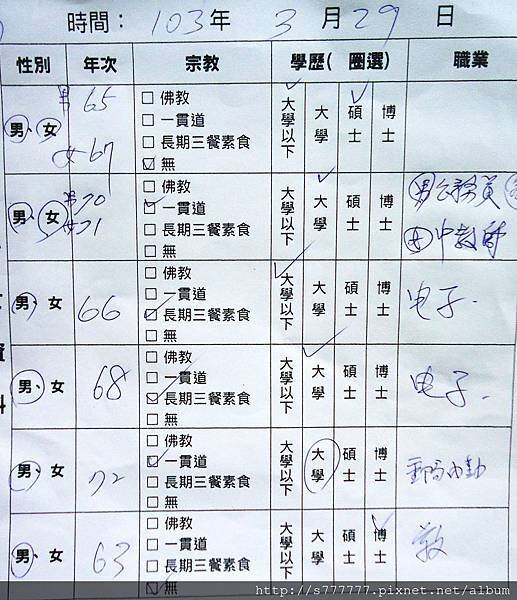 時間： 103年 3 月 29 日
性別 年次 宗教 學歷( 圈選) 職業
男、女 男 65 女 67 □ 佛教 □ 一貫道 □ 長期三餐素食 ☑ 無 大學以下 大學 碩士 博士
男、女 男 70 女 71 □ 佛教 ☑ 一貫道 □ 長期三餐素食 □ 無 大學以下 大學 碩士 博士 男公務員 女中教師
男、女 66 □ 佛教 □ 一貫道 ☑ 長期三餐素食 □ 無 大學以下 大學 碩士 博士 电子.
男、女 68 □ 佛教 □ 一貫道 ☑ 長期三餐素食 □ 無 大學以下 大學 碩士 博士 电子.
男、女 72 □ 佛教 ☑ 一貫道 □ 長期三餐素食 □ 無 大學以下 大學 碩士 博士 郵局內勤
男、女 63 □ 佛教 □ 一貫道 □ 長期三餐素食 ☑ 無 大學以下 大學 碩士 博士 教
http://s777777.pixnet.net/album